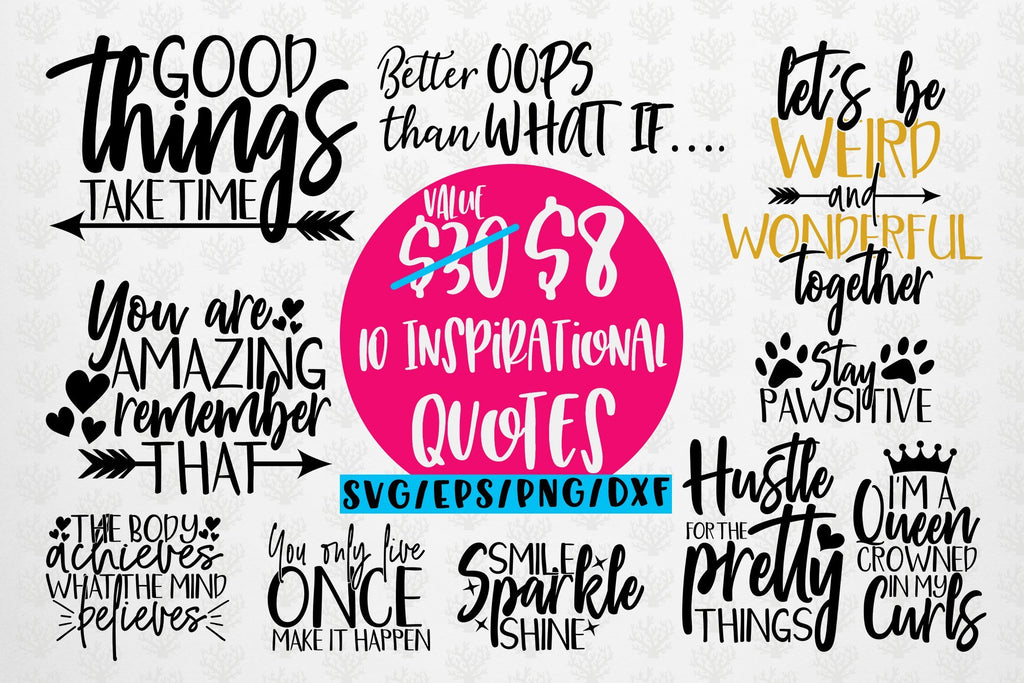 GOOD
things
TAKE TIME
Better OOPS
than WHAT IF....
let's be
WEIRD
and
WONDERFUL
together
VALUE
$30 $8
10 INSPIRATIONAL
QUOTES
SVG/EPS/PNG/DXF
You are
AMAZING
remember
THAT
Stay
PAWSITIVE
THE BODY
achieves
WHAT THE MIND
believes
You only live
ONCE
MAKE IT HAPPEN
SMILE
Sparkle
SHINE
Hustle
FOR THE
pretty
THINGS
I'M A
Queen
CROWNED
IN MY
Curls